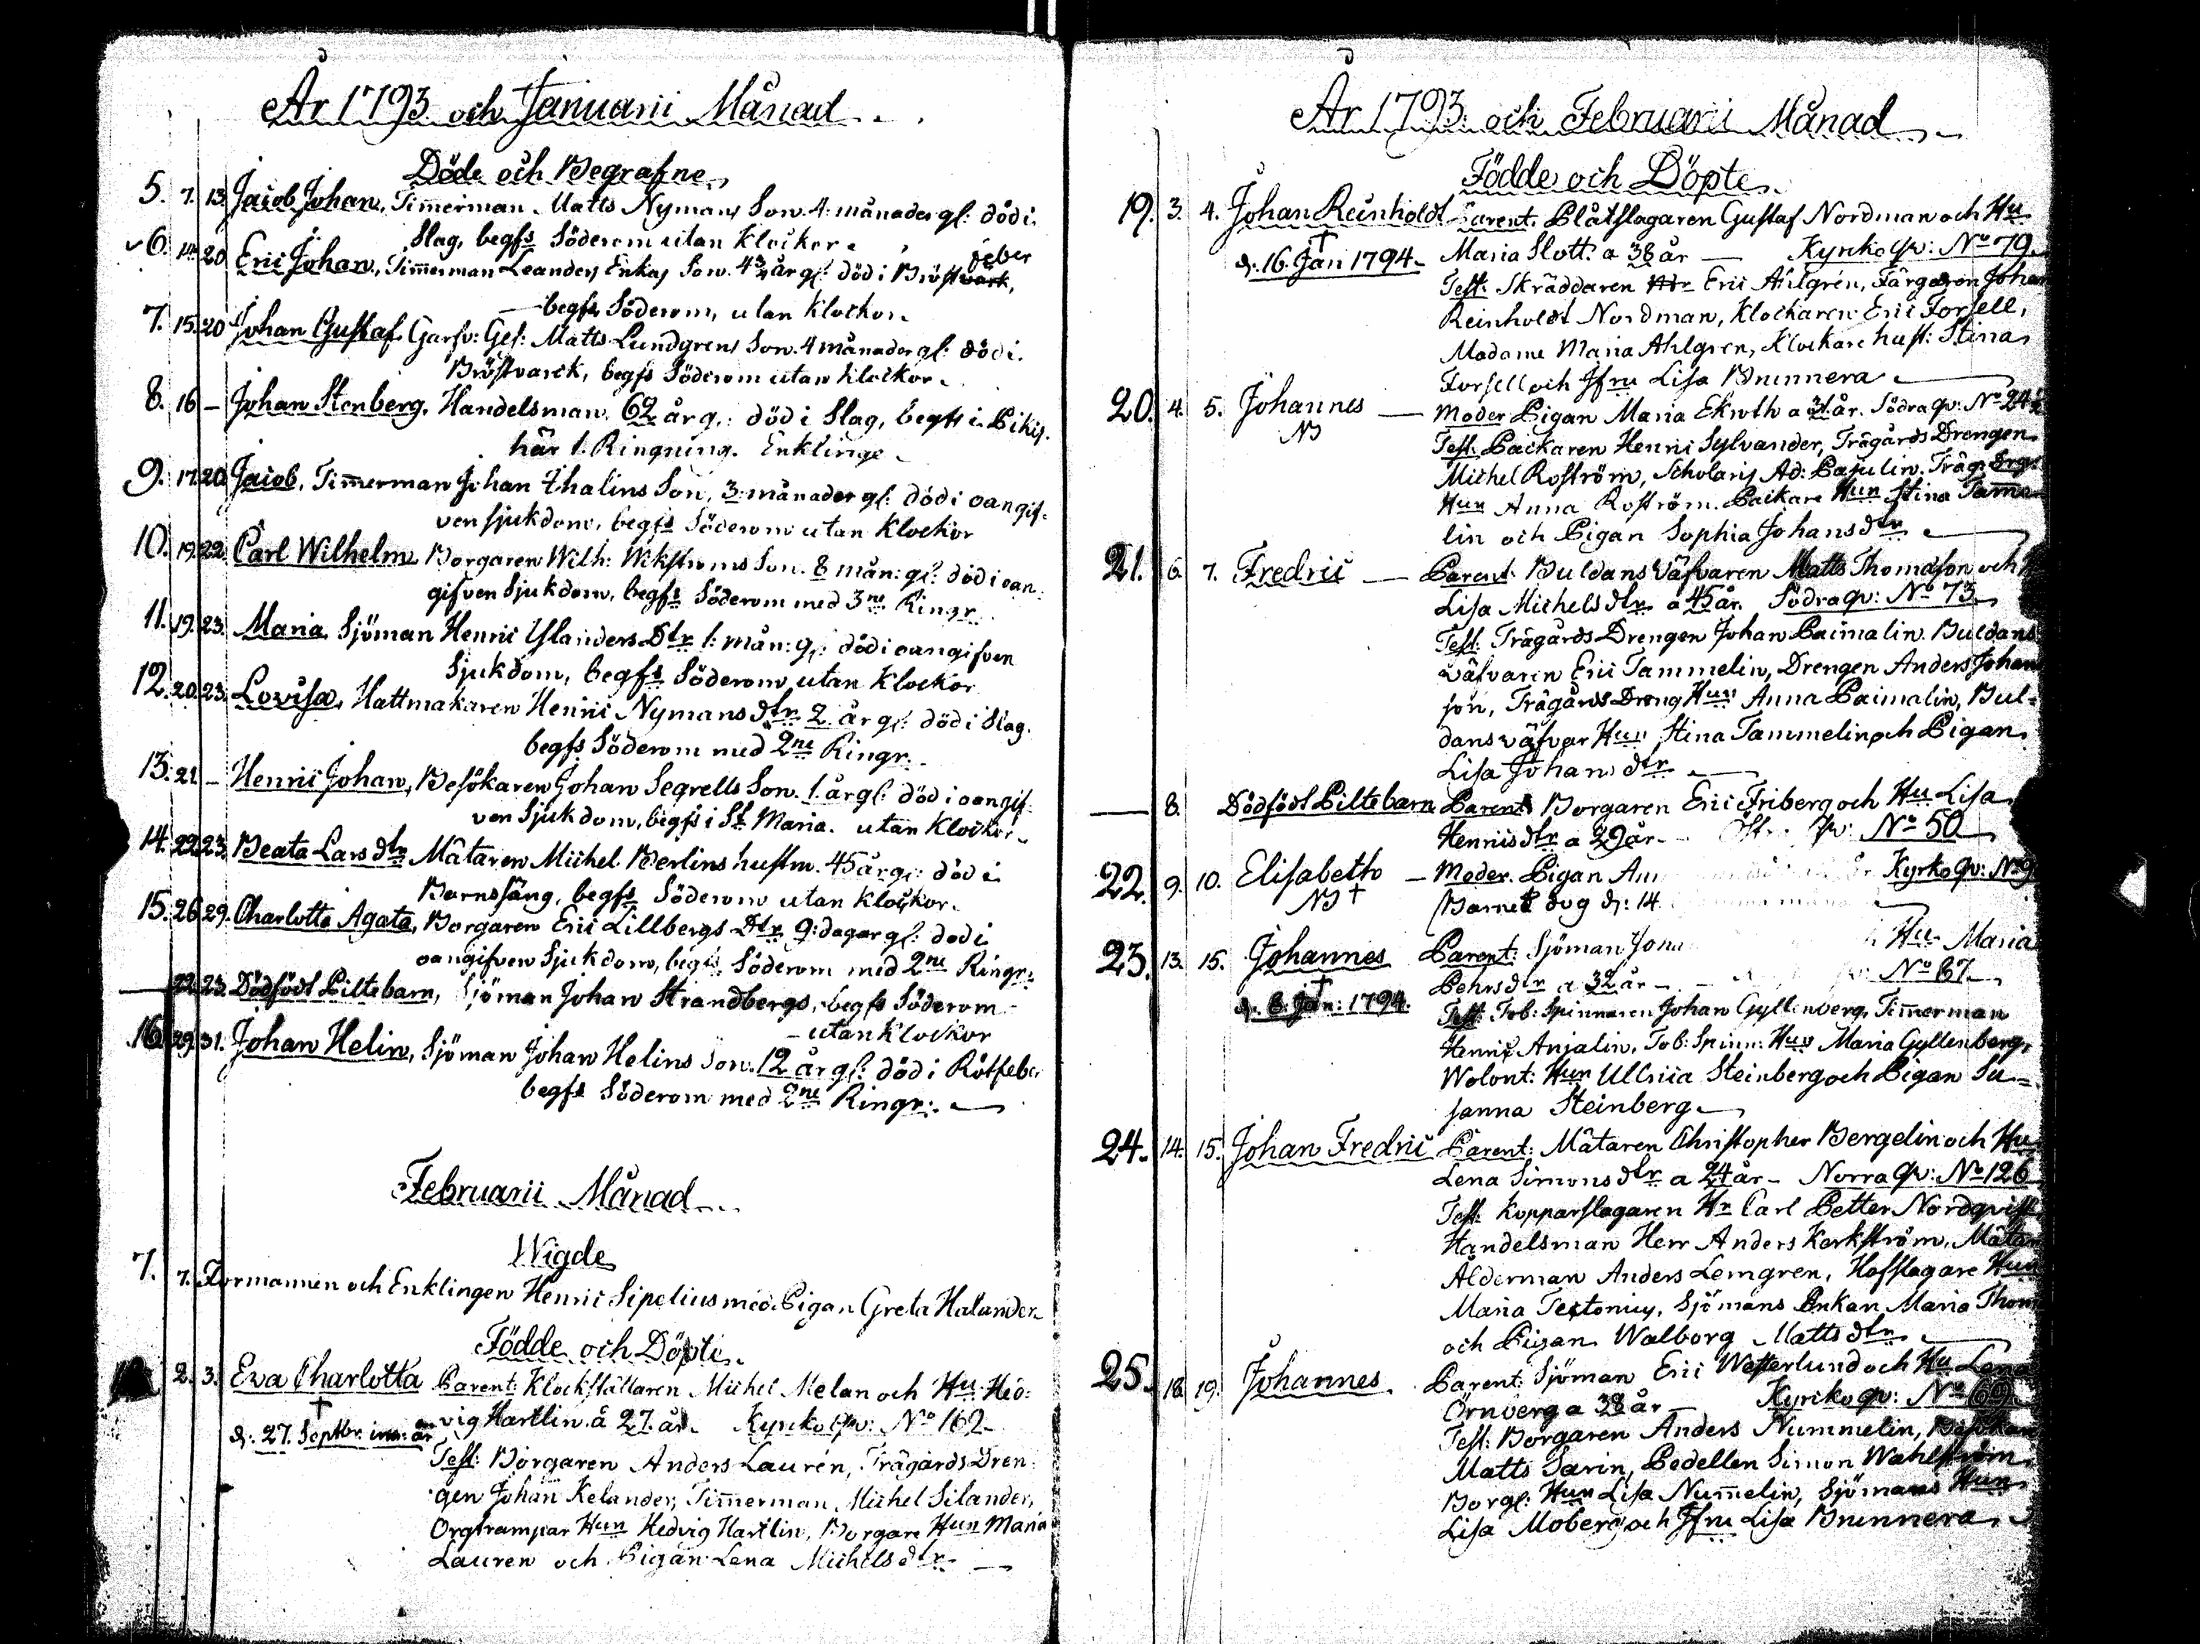 År 1793 och Januarii Månad
Döde och Begrafne
5. 7. 13. Jacob Johan, Timmerman Matts Nymans Son. 4. månader gl: död i
Slag, begfs Söderom utan Klockor.
6. 14. 20 Eric Johan, Timmerman Leanders Enkas Son. 4 3/4 år gl: död i Bröstwärk, feber
begfs Söderom, utan Klockor.
7. 15. 20 Johan Gustaf. Garfv: Ges: Matts Lundgrens Son. 4 månader gl: död i
Bröstvärck, begfs Söderom utan Klockor.
8. 16 – Johan Stenberg. Handelsman. 62 år g.: död i Slag, begfs i Pikis.
här 1. Ringning. Enklinge
9. 17. 20. Jacob. Timmerman Johan Thalins Son, 3. månader gl: död i oangif:
ven sjukdom, begfs Söderom utan Klockor
10. 19. 22. Carl Wilhelm Borgaren Wilh: Wikströms Son. 8 mån: gl: död i oan:
gifven Sjukdom, begfs Söderom med 3ne Ringr.
11. 19. 23. Maria Sjöman Henric Ylanders Dtr 1: mån: gl: död i oangifven
Sjukdom, begfs Söderom utan Klockor
12. 20. 23. Lovisa, Hattmakaren Henric Nymans dtr 2 år gl: död i Slag.
begfs Söderom med 2ne Ringr.
13. 21. – Henric Johan, Besökaren Johan Segrells Son. 1. år gl: död i oangif:
ven Sjukdom, begfs i St Maria. utan Klockor
14. 22. 23. Beata Lars dtr Mätaren Michel Berlins hustru. 45 år gl: död i
Barnssäng, begfs Söderom utan Klockor.
15. 26. 29. Charlotta Agata, Borgaren Eric Lillbergs Dtr 9: dagar gl: död i
oangifven Sjukdom, begfs Söderom med 2ne Ringr:
— 22. 23. Dödfödt Piltebarn, Sjöman Johan Strandbergs, begfs Söderom
utan Klockor
16. 29. 31. Johan Helin, Sjöman Johan Helins Son. 12 år gl: död i Rötfeber
begfs Söderom med 2ne Ringr:
Februarii Månad
Wigde
7. 7. Formannen och Enklingen Henric Sipelius med Pigan Greta Halander
Födde och Döpte
2. 3. Eva Charlotta Parent: Klockställaren Michel Melan och Hu. Hed:
vig Hartlin. a 27. år. Kyrko qv: No 162
† d. 27. Septbr. inn: år
Test: Borgaren Anders Lauren, Trägårds Dren:
gen Johan Kelander, Timmerman Michel Silander,
Orgtrampar Hun Hedvig Hartlin, Borgare Hun Maria
Lauren och Pigan Lena Michelsdtr
År 1793. och Februarii Månad
Födde och Döpte
19. 3. 4. Johan Reinholdt Parent. Plåtslagaren Gustaf Nordman och Hu
† d. 16. Jan 1794. Maria Slott. a 38 år — Kyrko qv: No 79.
Test: Skräddaren Eric Ahlgren, Färgaren Johan
Reinholdt Nordman, Klockaren Eric Forsell,
Madame Maria Ahlgren, Klockare hust: Stina
Forsell och Jfru Lisa Brunnera
20. 4. 5. Johannes — Moder Pigan Maria Ekroth a år. Södra qv: No 24
NB Test: Packaren Henric Sylvander, Trägårds Drengen
Michel Roström, Scholaris Ad: Pasulin. Träg: Drg:
Hun Anna Roström. Packare Hun Stina Tamme
lin och Pigan Sophia Johansdtr
21. 6. 7. Fredric — Parent: Buldans Väfvaren Matts Thomasson och
Lisa Michelsdtr a 45 år. Södra qv: No 73
Test: Trägårds Drengen Johan Paimalin. Buldans
väfvaren Eric Tammelin, Drengen Anders Johans
son, Trägårds Dreng Hun Anna Paimalin, Bul:
dans väfvar Hun Stina Tammelin och Pigan
Lisa Johans dtr
— 8. Dödfödt Piltebarn Parent: Borgaren Eric Friberg och Hu Lisa
Hennis dtr a 29 år. Östr. qv: No 50
22. 9. 10. Elisabeth — Moder. Pigan Kyrko qv: No 9
NB † Barnet dog d: 14
23. 13. 15. Johannes Parent: Sjöman Hu Maria
Pehrsdtr a 32 år No 67
† d. 8. Jan: 1794. Test: Tob: Spinnaren Johan Gyllenberg, Timmerman
Henric Anjalin, Tob: Spinn: Hun Maria Gyllenberg,
Wolont: Hun Ullrica Steinberg och Pigan Su=
sanna Steinberg
24. 14. 15. Johan Fredric Parent: Mätaren Christopher Bergelin och Hu
Lena Simonsdtr a 24 år – Norra qv: No 126
Test: Kopparslagaren Hr Carl Petter Nordqvist
Handelsman Herr Anders Kerkström, Mätar
Ålderman Anders Lemgren, Hofslagare Hun
Maria Testonius, Sjömans Enkan Maria Thom
och Pigan Walborg Mattsdtr
25. 18. 19. Johannes. Parent: Sjöman Eric Westerlund och Hu Lena
Örnberg a 38 år — Kyrko qv: No 69
Test: Borgaren Anders Nummelin, Besökar
Matts Sarin, Pedellen Simon Wahlström
Borg: Hun Lisa Nummelin, Sjömans Hun
Lisa Moberg och Jfru Lisa Brunnera